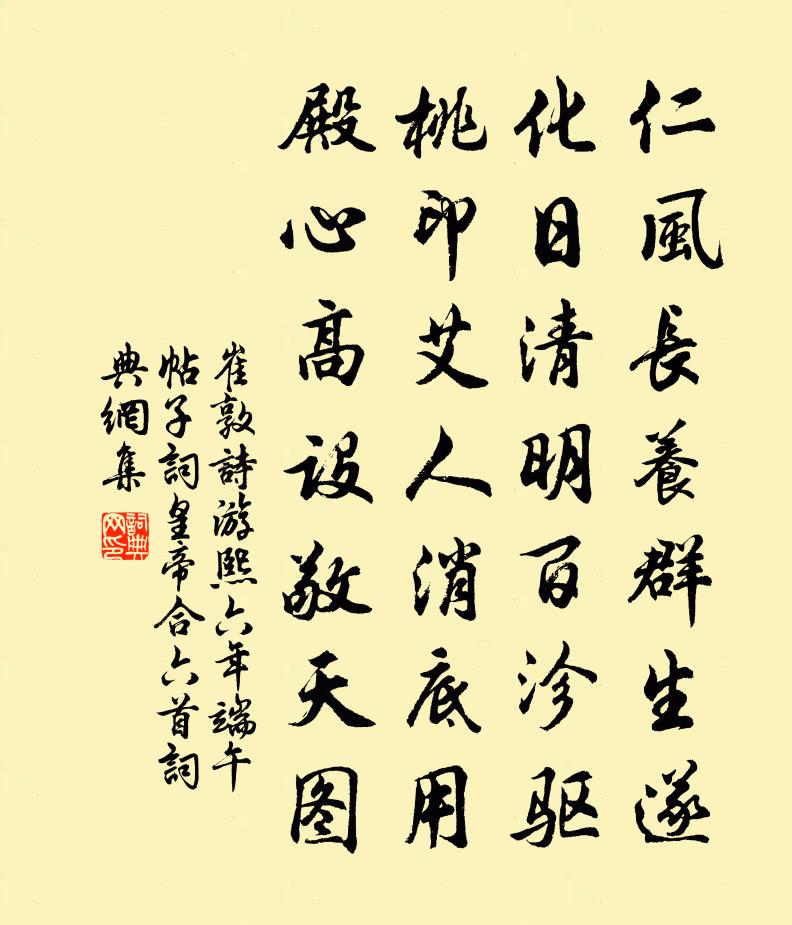 仁風長養群生遂
化日清明百沴驱
桃印艾人消底用
殿心高设敬天图
崔敦詩游熙六年端午
帖子詞皇帝合六首詞
典網集
詞典
网印